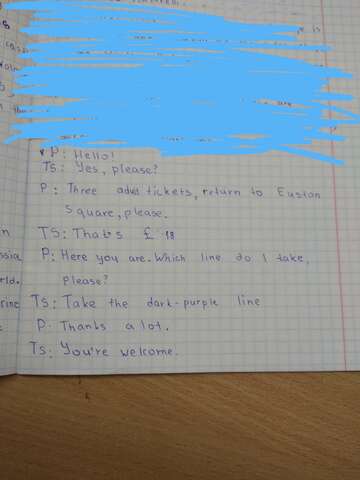 P: Hello!
TS: Yes, please?
P: Three adult tickets, return to Euston
Square, please.
TS: That's £ 18
P: Here you are. Which line do I take,
please?
Ts: Take the dark-purple line
P: Thanks a lot.
Ts: You're welcome.